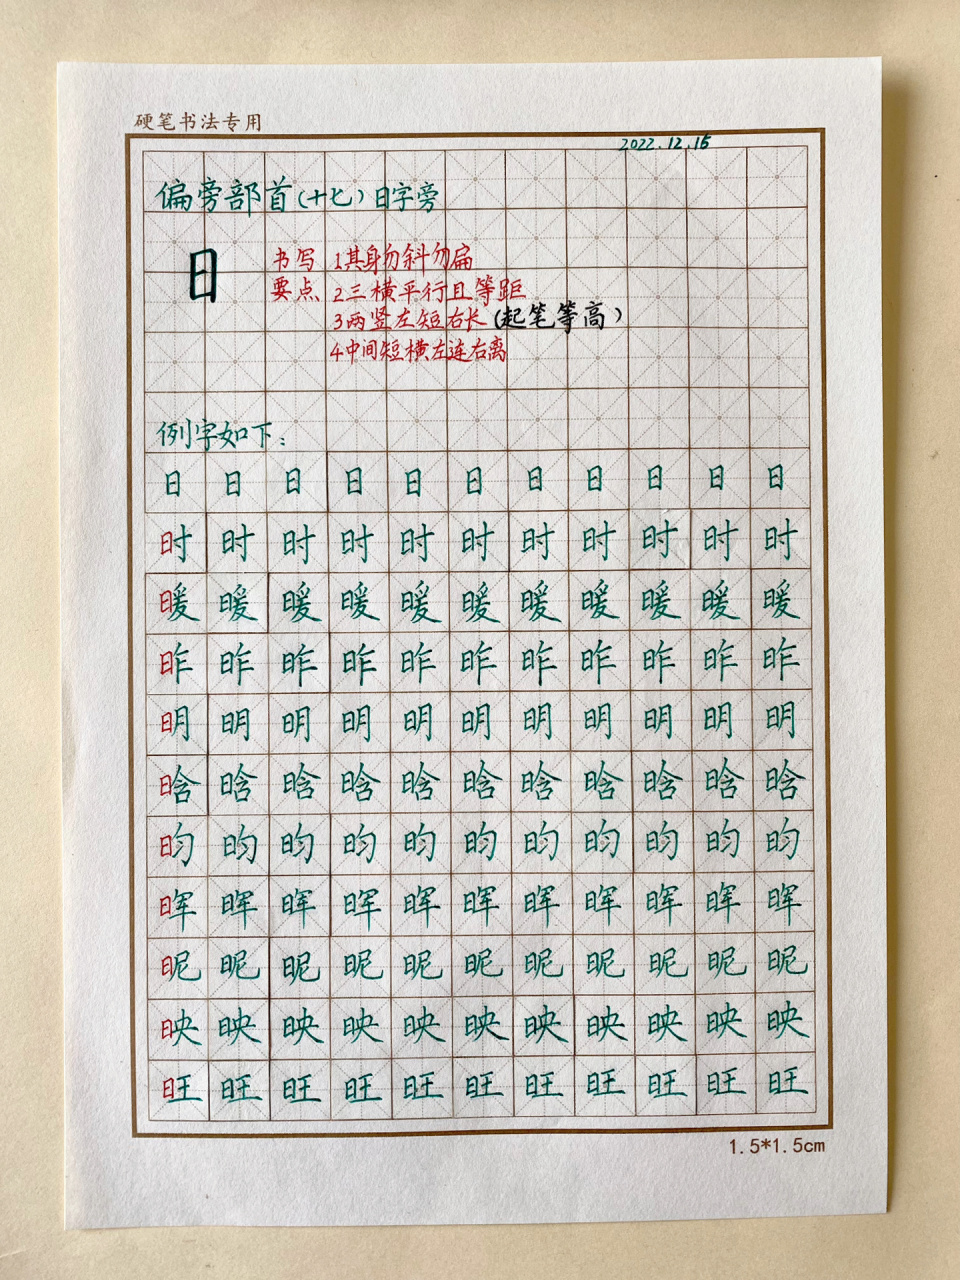 硬笔书法专用
2022.12.15
偏旁部首(十七)日字旁
日
书写要点
1其身勿斜勿扁
2三横平行且等距
3两竖左短右长(起笔等高)
4中间短横左连右离
例字如下:
日日日日日日日日日日日
时时时时时时时时时时时
暖暖暖暖暖暖暖暖暖暖暖
昨昨昨昨昨昨昨昨昨昨昨
明明明明明明明明明明明
晗晗晗晗晗晗晗晗晗晗晗
昀昀昀昀昀昀昀昀昀昀昀
晖晖晖晖晖晖晖晖晖晖晖
昵昵昵昵昵昵昵昵昵昵昵
映映映映映映映映映映映
旺旺旺旺旺旺旺旺旺旺旺
1.5*1.5cm